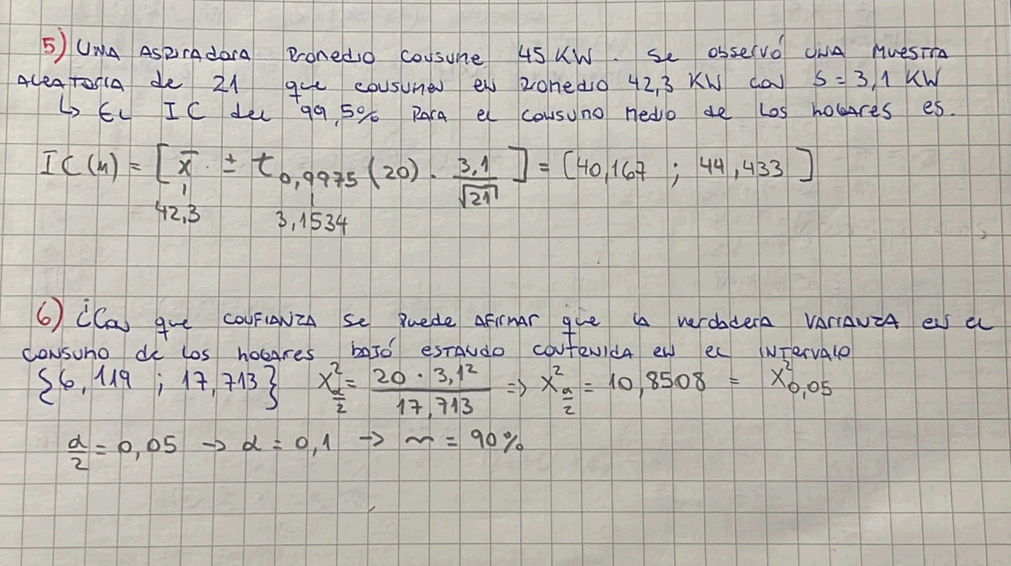 5) UNA ASPIRADORA PROMEDIO CONSUME 45 KW. Se observó UNA MUESTRA
ALEATORIA de 21 que consumen en promedio 42,3 KW con S = 3,1 KW
↳ EL IC del 99,5% PARA el consumo medio de Los hogares es.
IC(μ) = [x̄ ± t0,9975 (20) · 3,1/√21] = [40,167 ; 44,433]
42,3 3,1534
6) ¿Con que CONFIANZA se puede AFIRMAR que la verdadera VARIANZA en el
CONSUMO de los hogares bajó ESTANDO CONTENIDA en el INTERVALO
{6,119 ; 17,713} X²α/2 = 20 · 3,1²/17,713 => X²α/2 = 10,8508 = X²0,05
α/2 = 0,05 -> α = 0,1 -> ~ = 90%